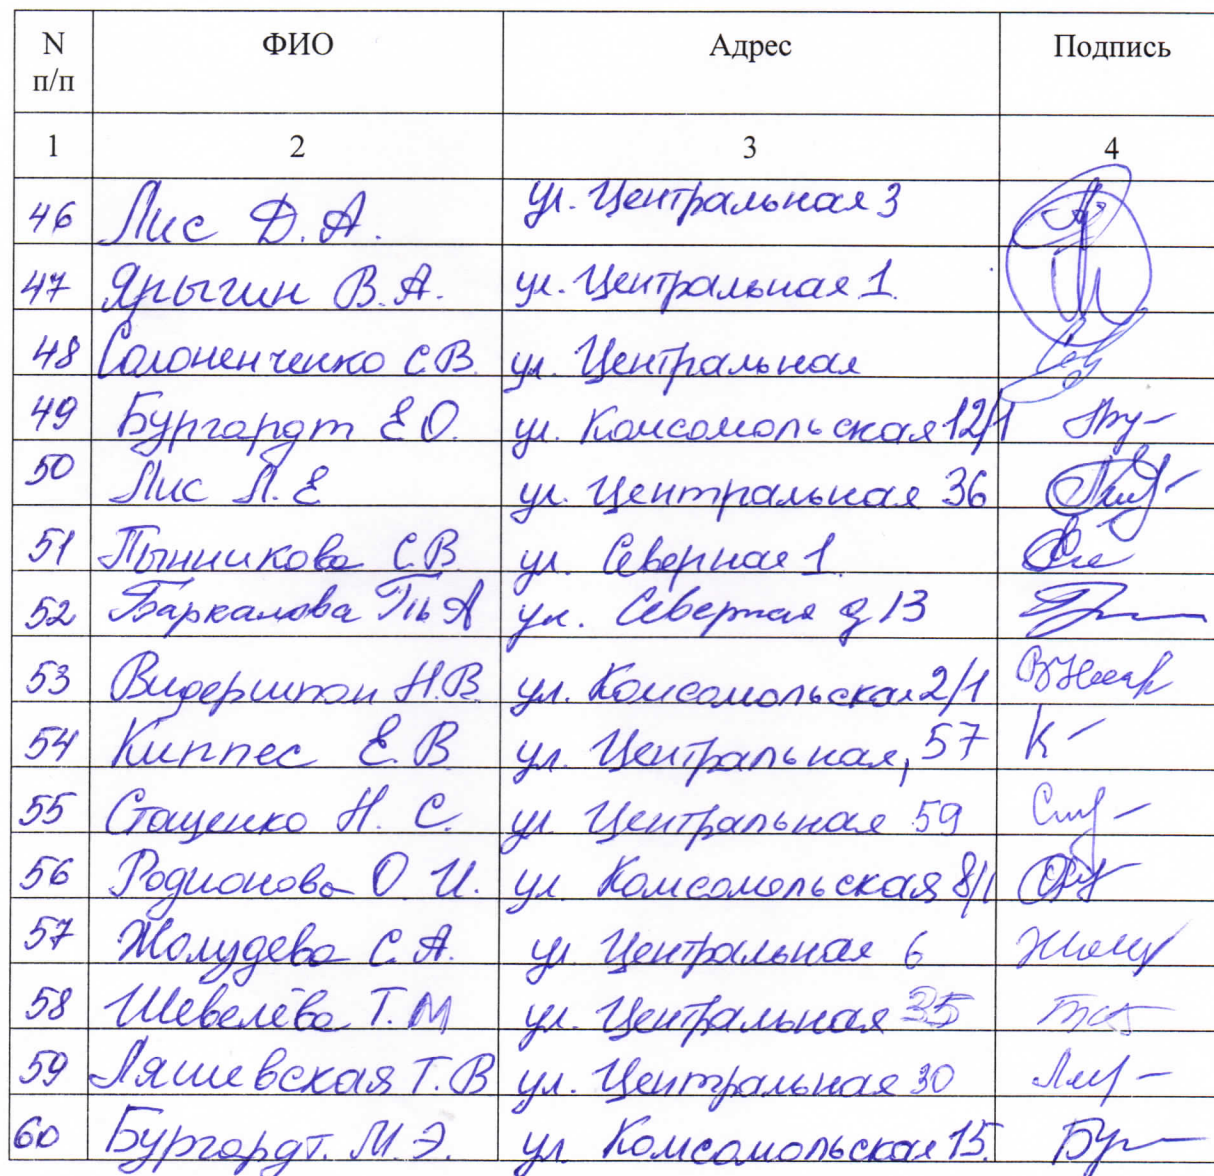 N п/п ФИО Адрес Подпись
1 2 3 4
46 Лис Д. А. ул. Центральная 3
47 Ярыгин В. А. ул. Центральная 1
48 Солоненченко С В ул. Центральная
49 Бургардт Е О. ул. Комсомольская 12/1
50 Лис Л. Е ул. Центральная 36
51 Пынникова С. В ул. Северная 1.
52 Баркалова А ул. Северная д 13
53 Видершпан Н. В. ул. Комсомольская 2/1
54 Киппес Е. В ул. Центральная, 57 К
55 Стаценко Н. С. ул Центральная 59
56 Родионова О И. ул. Комсомольская 8/1
57 Жолудева С. А. ул Центральная 6
58 Шевелёва Т. М ул. Центральная 35
59 Ляшевская Т. В ул. Центральная 30
60 Бургардт. М. Э. ул Комсомольская 15.